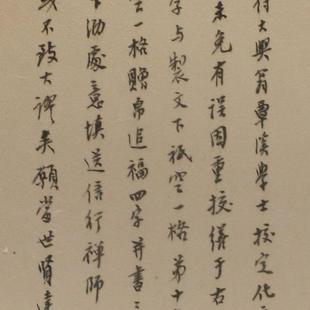 付大興翁覃溪學士校定化
未免有误因重校僅于右
字与製文下祗空一格第十
空一格贈帛追福四字并書三
下泐處意填送信行禅師
或不致大謬矣願當世賢達